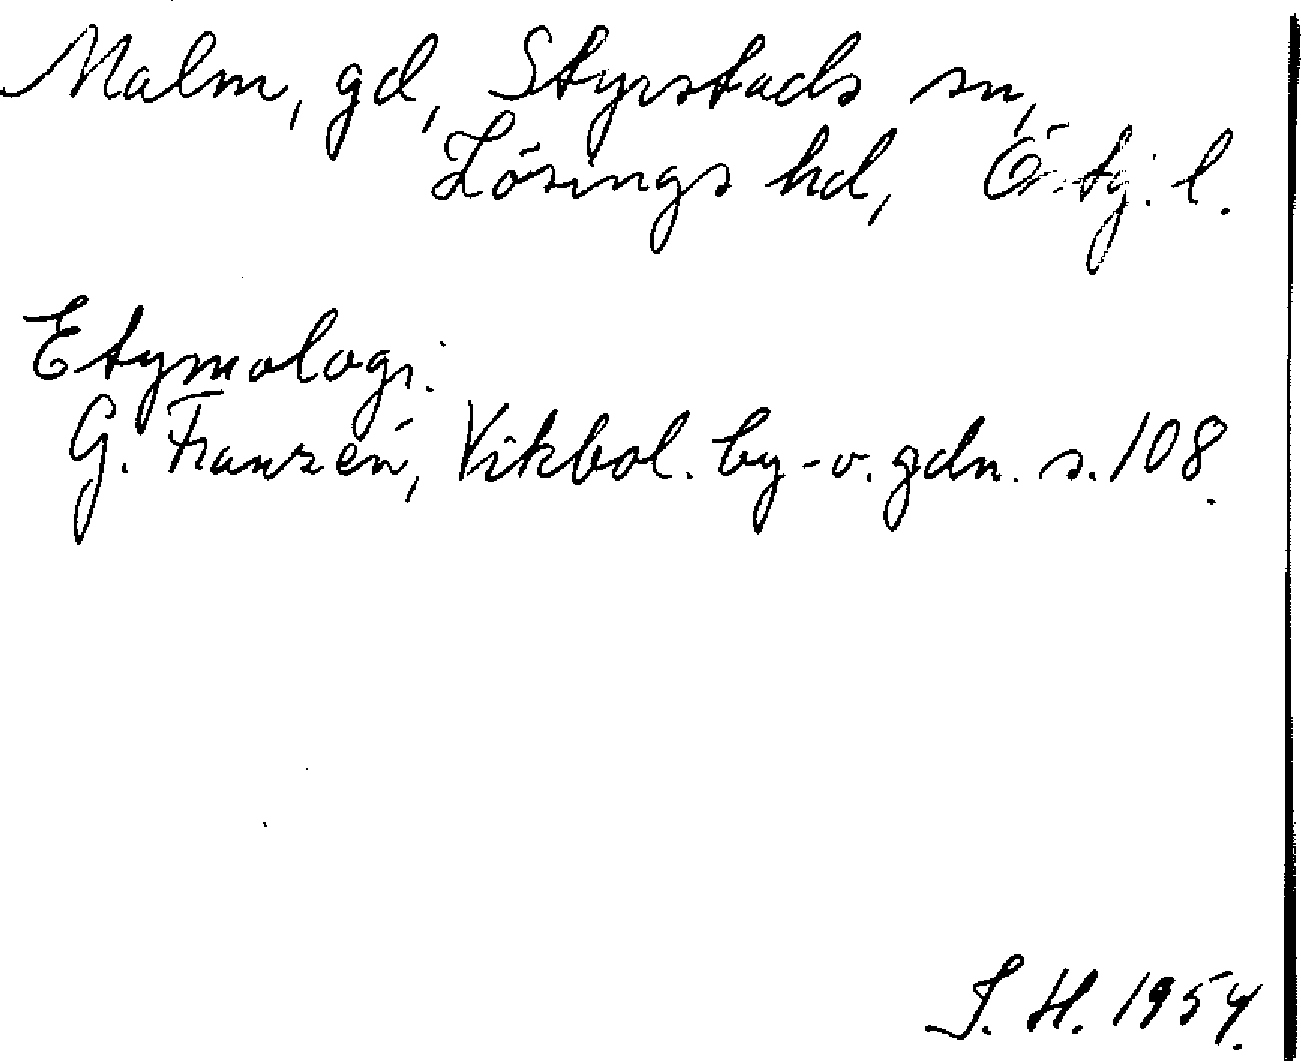 Malm, gd, Styrstads sn,
Lösings hd, Ö.tg. l.
Etymologi.
G. Franzén, Vikbol. by- o. gdn. s. 108.
S. H. 1954.